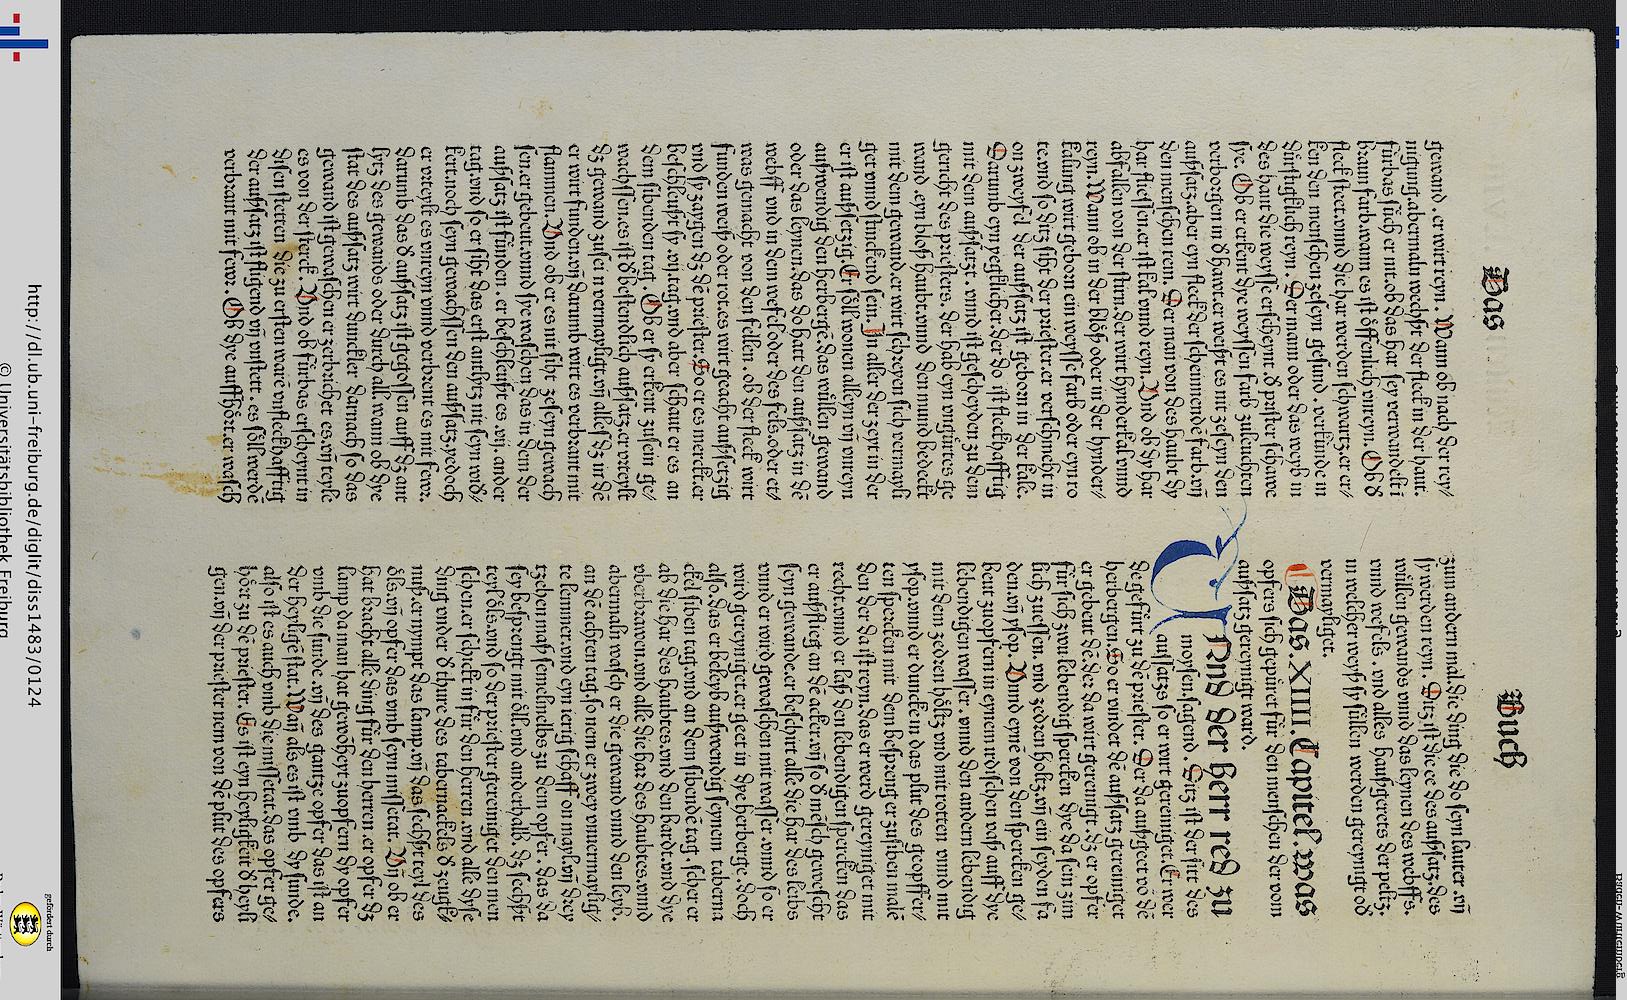 Das
Buch
gewand. er wirt reyn. Wann ob nach der rey/
nigung. abermaln wechßt der fleck in der haut.
fürbas sůch er nit. ob das har sey verwandelt ī
braun farb. wann es ist öffenlich vnreyn. Ob ď
fleck steet. vnnd die har werden schwartz. er er/
ken den menschen zeseyn gesund. verkünde in
dürstigklich reyn. Der mann oder das weyb in
des haut die weysse erscheynt ď prister schawe
sye. Ob er erkent dye weyssen farb zuleuchten
verborgen in ď hawt. er weyßt es nit zeseyn den
außsatz. aber eyn fleck der scheinende farb. vn̄
den menschen rein. Der man von des haubt dy
har fliessen. er ist kal vnnd reyn. Vnd ob dy har
abfallen von der stirn. der wirt hynderkal vnnd
reyn. Wann ob in der blöß oder in der hynder/
kalung wirt geborn ein weysse farb oder eyn ro
te. vnd so ditz siht der priester. er verschmeht in
on zweyfel der aussatz ist geborn in der kale.
Darumb eyn yegklicher. der do ist fleckhafftig
mit dem außsatzt. vnnd ist gescheyden zu dem
gericht des priesters. der hab eyn vngürtes ge
wand. eyn bloß haubt. vnnd den mund bedeckt
mit dem gewand. er wirt schreyen sich vermayli
get vnnd stinckend sein. In aller der zeyt in der
er ist außsetzig. Er söll wonen alleyn vn̄ vnreyn
außwendig den herbergē. das wüllen gewand
oder das leynen. das do hatt den außsatz in dē
webff vnd in dem wefel oder des fels. oder et/
was gemacht von den fellen. ob der fleck wirt
funden weiß oder rot. es wirt geacht außsetzig
vnd sy zaygen dz dē priester. So er es mercket. er
beschleußt sy .vij. tag. vnd aber schaut er es an
dem sibenden tag. Ob er sy erkent zusein ge/
wachssen. es ist ď bestendlich außsatz. er vrteylt
dz gewand zusein vermayligt. vn̄ alles dz in dē
er wirt funden. vn̄ darumb wirt es verbrant mit
flammen. Vnd ob er es nit siht zeseyn gewach
sen. er gebeut. vnnd sye waschen das in dem der
außsatz ist funden. er beschleußt es .vij. ander
tag. vnd so er siht das erst antlytz nit seyn widď/
kert. noch seyn gewachssen den außsatz. yedoch
er vrteylt es vnreyn vnnd verbrent es mit fewr.
darumb das ď außsatz ist gegossen auff dz ant
lytz des gewands oder durch all. wann ob dye
stat des außsatz wirt dunckler darnach so das
gewand ist gewaschen er zerbrichet es. vn̄ teyle
es von der sterck. Vnd ob fürbas erscheynt in
disen stetten die zu ersten warē vnfleckhafftig
der außsatz ist fligend vn̄ vnstett. es söll werdē
verbrant mit fewr. Ob dye auffhört. er wasch
zum andern mal die ding die do seyn lauter. vn̄
sy werden reyn. Ditz ist die ee des außsatz. des
wüllen gewands vnnd das leynen des webffs.
vnnd wefels. vnd alles haußgerets der peltz.
in welcher weyß sy süllen werden gereynigt oď
vermayliget.
Das .XIIII. Capitel. was
opfers sich gepüret für den menschen der vom
außsatz gereynigt ward.
VNd der herr red zu
moysen. sagend. Ditz ist der sitt des
aussatzs so er wirt gereiniget. Er wer
de gefürt zu dē priester. Der da außgeet vō dē
herbergen. So er vindet dē außsatz gereiniget
er gebeut dē. der da wirt gereinigt. dz er opfer
für sich zwu lebendig specken dye da sein zim
lich zuessen. vnd zedren holtz. vn̄ ein seyden fa
den. vn̄ ysop. Vnnd eynē von den specken ge/
beut zuopfern in eynem irdischen vaß auff dye
lebendigen wasser. vnnd den andern lebendig
mit dem zedren höltz vnd mit rottem vnnd mit
ysop. vnnd er duncke in das plut des geopffer/
ten specken mit dem bespreng er zusiben malē
den der da ist reyn. das er werd gereyniget mit
recht. vnnd er laß den lebendigen specken das
er außflieg an dē acker. vn̄ so ď mēsch gewescht
seyn gewande. er beschirt alle die har des leibs
vnnd er wird gewaschen mit wasser. vnnd so er
wird gereyniget. er geet in dye herberge. doch
also. das er beleyb außwendig seynem taberna
ckel siben tag. vnd an dem sibendē tag. scher er
ab die har des haubtes. vnd den bardt. vnd dye
vberbrawen. vnd alle die har des haubtes. vnnd
abermaln wasch er die gewand vnnd den leyb.
an dē achten tag. so nem er zwey vnuermayligt/
te lemmer. vnd eyn ierig schaff on mayl. vn̄ drey
tzehen maß semelmelbs zu dem opfer. das da
sey besprengt mit öll. vnd anderhalb. dz sechst
teyl öls. vnd so der priester gereiniget den men
schen. er schickt in für den herren. vnd alle dyse
ding vnder ď thure des tabernackels ď zeugkß
nuß. er nympt das lamp. vn̄ das sechst teyl des
öls. vn̄ opfer das vmb seyn missetat. Vn̄ ob er
hat bracht alle ding für den herren. er opfer dz
lamp da man hat gewöheyt zuopfern dy opfer
vmb die sunde. vn̄ des gantze opfer das ist an
der heylige stat. Wan̄ als es ist vmb dy sunde.
also ist es auch vmb die missetat. das opfer ge/
hört zu dē priester. Es ist eyn heyligkeit ď heyli
gen. vn̄ der priester nem von dē plut des opfers
http://dl.ub.uni-freiburg.de/diglit/diss1483/0124
© Universitätsbibliothek Freiburg
gefördert durch